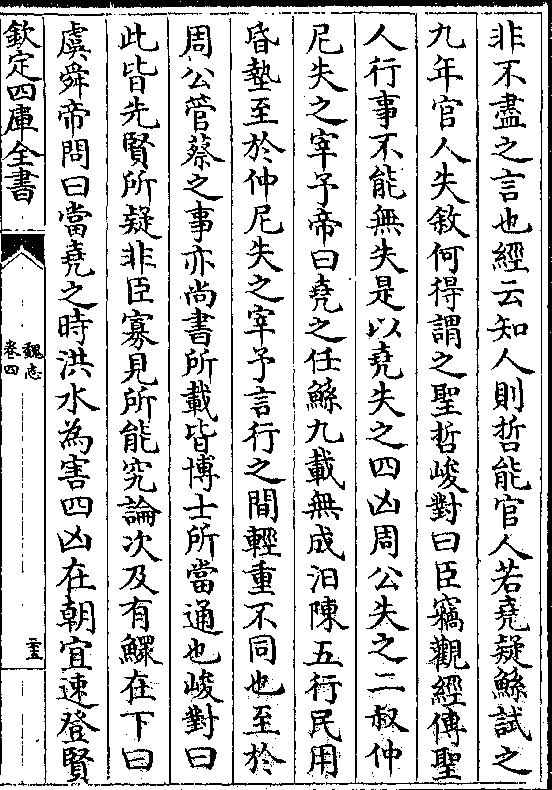 非不盡之言也經云知人則哲能官人若堯疑鯀試之
九年官人失敘何得謂之聖哲峻對曰臣竊觀經傳聖
人行事不能無失是以堯失之四凶周公失之二叔仲
尼失之宰予帝曰堯之任鯀九載無成汨陳五行民用
昏墊至於仲尼失之宰予言行之間輕重不同也至於
周公管蔡之事亦尚書所載皆博士所當通也峻對曰
此皆先賢所疑非臣寡見所能究論次及有鰥在下曰
虞舜帝問曰當堯之時洪水為害四凶在朝宜速登賢
欽定四庫全書
魏志
卷四
二十五